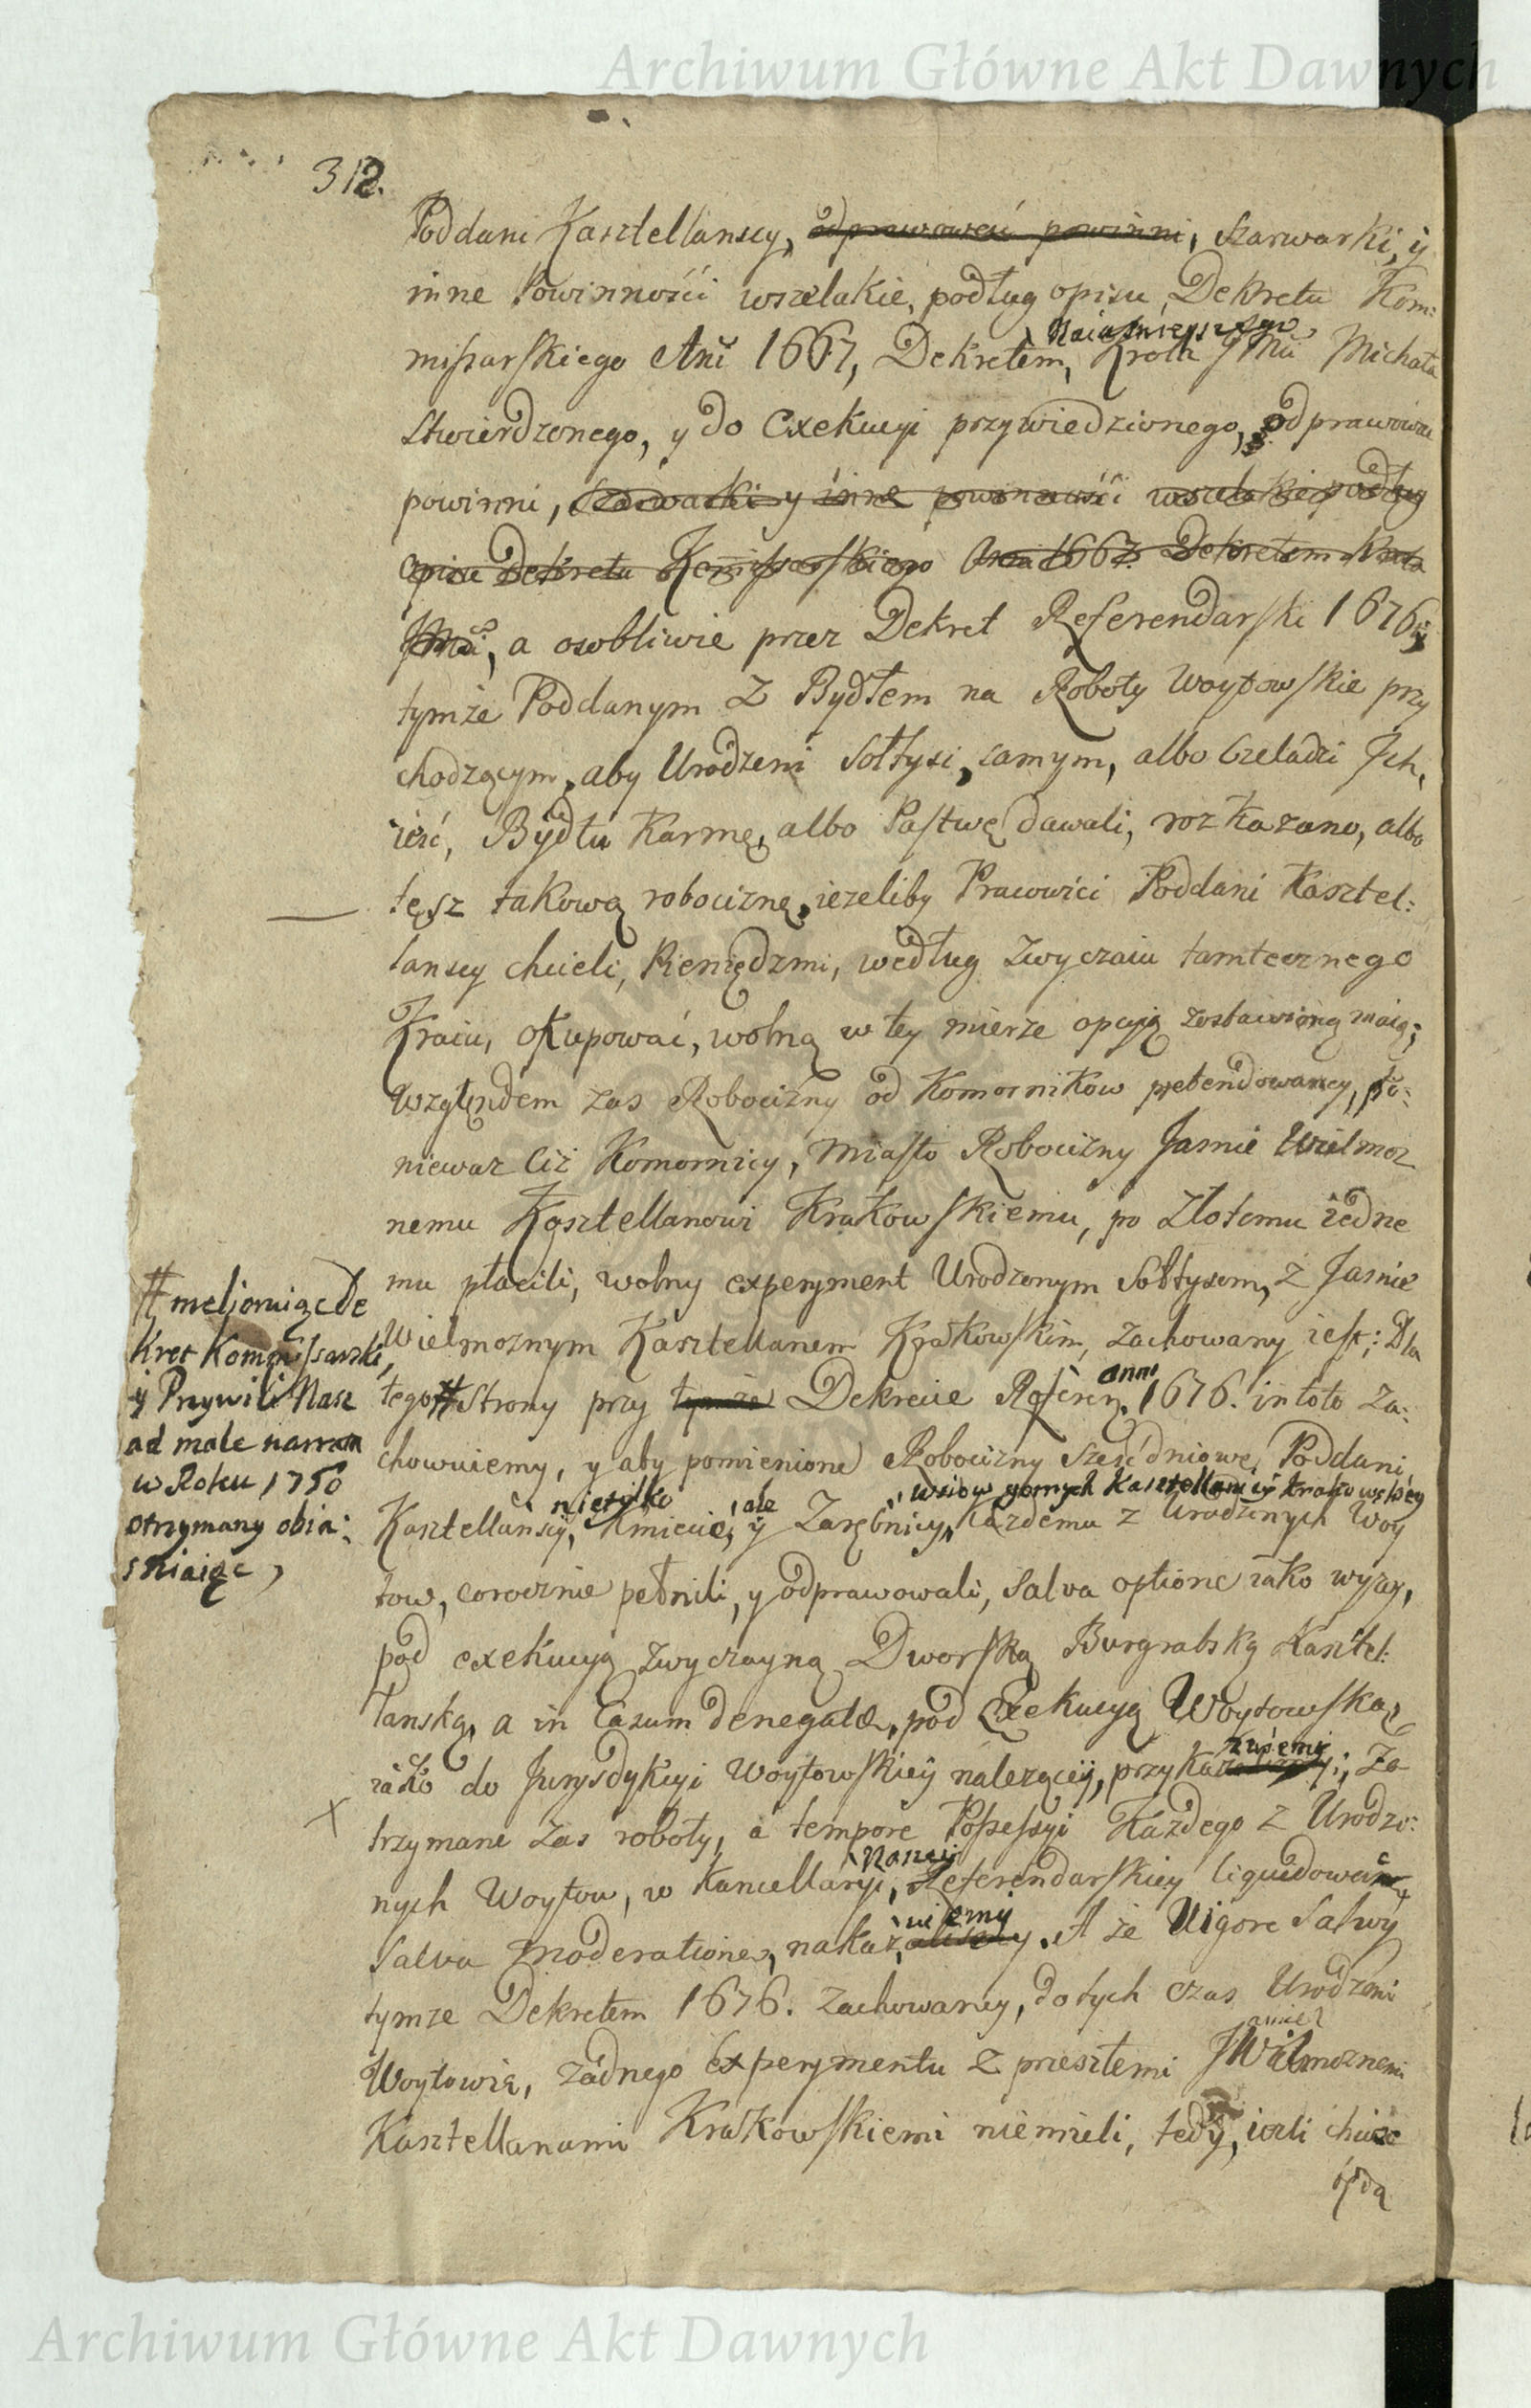 Archiwum Główne Akt Dawnych
312.
Poddani Kasztellanscy, odprawować powinni, Szarwarki, ÿ
inne Powinnośći wszelakie, podług opisu, Dekretu Kom:
missarskiego Ani 1667, Dekretem, Naiaśnieyszego Krola JMci Michała
Stwierdzonego, y do Exekucyi przywiedzionego, odprawowac
powinni, Szarwarki y inne powinnośći wszelakie podług
opisu Dekretu Komissarskiego 1667. Dekretem Krola
JMci, a osobliwie przez Dekret Referendarski 1676
tymże Poddanym z Bydłem na Roboty Woytowskie przy
chodzącym, aby Urodzeni Sołtysi, samym, albo Czeladzi Ich,
ieść, Bydłu Karmę, albo Pastwę dawali, rozkazano, albo
tęsz takową robociznę, iezeliby Pracowici Poddani Kasztel:
lanscy chcieli, Pieniędzmi, według Zwyczaiu tamtecznego
Kraiu, okupować, wolną w tey mierze opcyją zostawioną maią;
Względem zas Robocizny od Komornikow pretendowaney, po:
niewaz Ciż Komornicy, miasto Robocizny Jasnie Wielmoz
nemu Kasztellanowi Krakowskiemu, po Złotemu iedne
mu płacili, wolny experyment Urodzonym Sołtysom, z Jasnie
Wielmoznym Kasztellanem Krakowskim, zachowany iest; Dla
tego # Strony przy tymże Dekrecie Referen. anni 1676. in toto Za:
chowuiemy, y aby pomienione Robocizny Sześćdniowe, Poddani
Kasztellańscÿ, nietylko Kmiecie, ale ÿ Zarębnicy, wsiow gornych Kasztellanij Krakowskiey każdemu z Urodzonych Woy
tow, corocznie pełnili, y odprawowali, Salva optione iako wyzey,
pod exekucyą zwyczayną Dworską Burgrabską Kasztel:
lanską, a in Casum denegatae, pod Exekucyą Woytowską,
iako do Jurysdykcyi Woytowskieÿ nalezącÿ, przykazuiemy; Za
trzymane zas roboty, a tempore Possessyi Każdego z Urodzo:
nych Woytow, w Kancellaryi, Naszey Referendarskiey liquidować
Salva moderatione, nakazuiemy. A że Vigore Salwÿ
tymze Dekretem 1676. Zachowaney, do tych czas Urodzeni
Woytowie, żadnego Experymentu z przeszłemi JWielmoznemi
Kasztellanami Krakowskiemi niemieli, tedÿ, ieżli chcieć
będą
# meljoruiąc De
kret Kommissarski,
ÿ Przywiley Nasz
ad male narrata
w Roku 1750
otrzymany obia:
sniaiąc,
Archiwum Główne Akt Dawnych